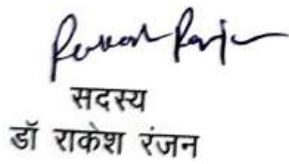 सदस्य
डॉ राकेश रंजन